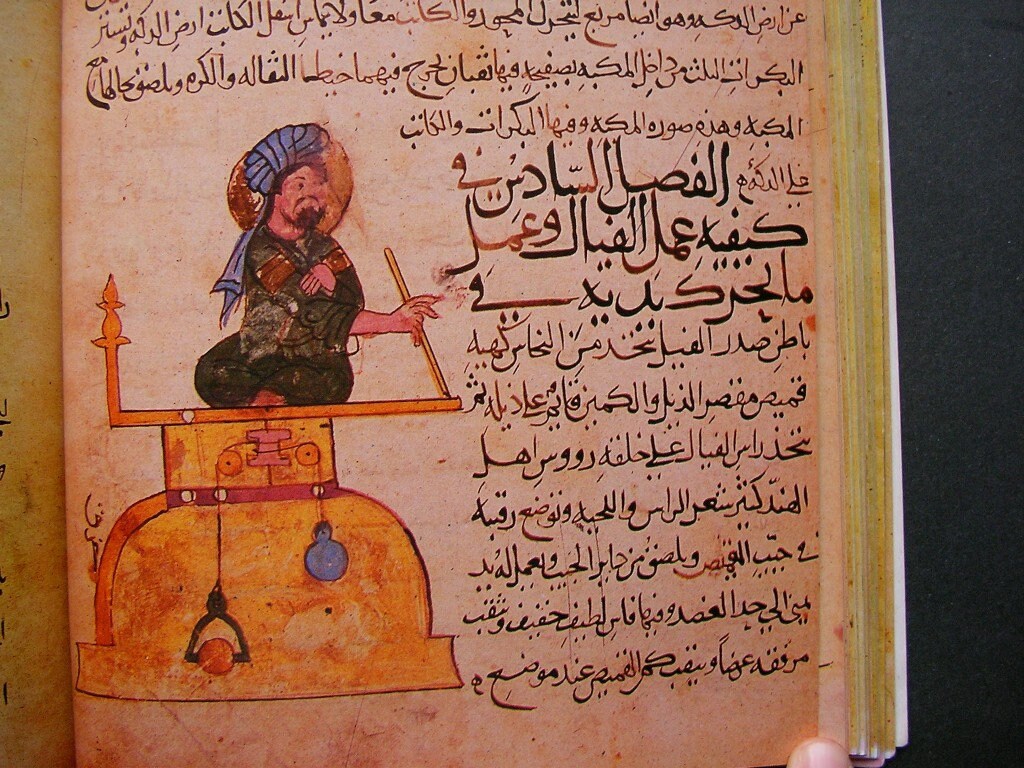 عن ارض الدكه وهو ايضا مربع ليتحرك المحور والكاتب معا ولا يماس اسفل الكاتب ارض الدكه وتستر
البكرات الثلث من داخل المكبه بصفيحه فيها ثقبان يخرج فيهما خيطا الثقاله والكره ويلصق حالها
المكبه وهذه صوره المكبه وفيها البكرات والكاتب
على الدكه
الفصل السادس في
كيفيه عمل الفيال وعمل
ما يحرك يديه في
باطن صدر الفيل يتخذ من النحاس كهيه
قميص مقصر الذيل والكمين قايم على ذيله ثم
يتخذ راس الفيال على خلقه رووس اهل
الهند كثير شعر الراس واللحيه وتوضع رقبته
في جيب القميص ويلصق من جاير الجيب ويعمل له يد
يمنى الى حد العضد وفيها فاس لطيف خفيف ويثقب
مرفقه عرضا ويثقب كم القميص عند موضع